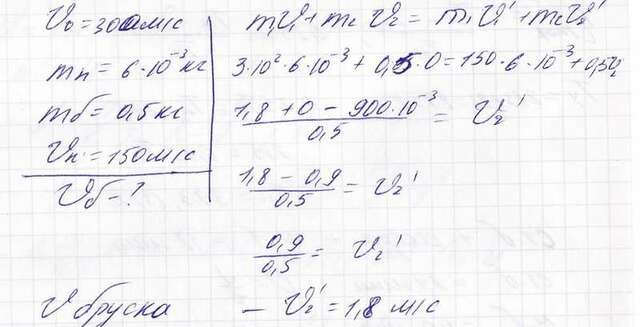 V₀ = 300 м/с
mп = 6·10⁻³ кг
mб = 0,5 кг
Vп = 150 м/с
Vб - ?
m₁V₁ + m₂V₂ = m₁V₁' + m₂V₂'
3·10²·6·10⁻³ + 0,5·0 = 150·6·10⁻³ + 0,5V₂
(1,8 + 0 - 900·10⁻³)/0,5 = V₂'
(1,8 - 0,9)/0,5 = V₂'
0,9/0,5 = V₂'
V бруска - V₂' = 1,8 м/с